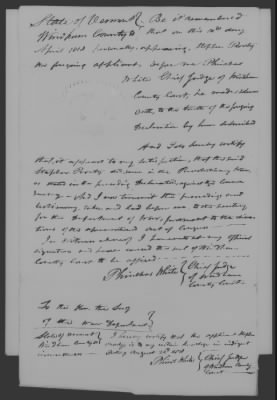 State of Vermont Be it remembered
Windham County ss that on this 10th day
April 1818 personally appearing Stephen
the foregoing applicant, before me Phinehas
White Chief Judge of Windham
County Court, he made solemn
oath, to the truth of the foregoing
declaration by him subscribed
And I do hereby certify
that, it appears to my satisfaction, that the said
Stephen did serve in the Revolutionary War
as stated in the preceding declaration, against the common
enemy - And I now transmit the proceedings and
testimony, taken and had before me, to the Secretary
for the Department of War, pursuant to the direc-
tions of the aforementioned act of Congress
In witness whereof I have set my official
signature and have caused the seal of the
County Court to be affixed
Phinehas White Chief Judge
of Windham
County Court
To the Hon the Secy
of the War Department
State of Vermont I hereby certify that the applicant Stephen
Windham County ss is in indigent
circumstances August 1818
Phins White Chief Judge
of Windham County
Court